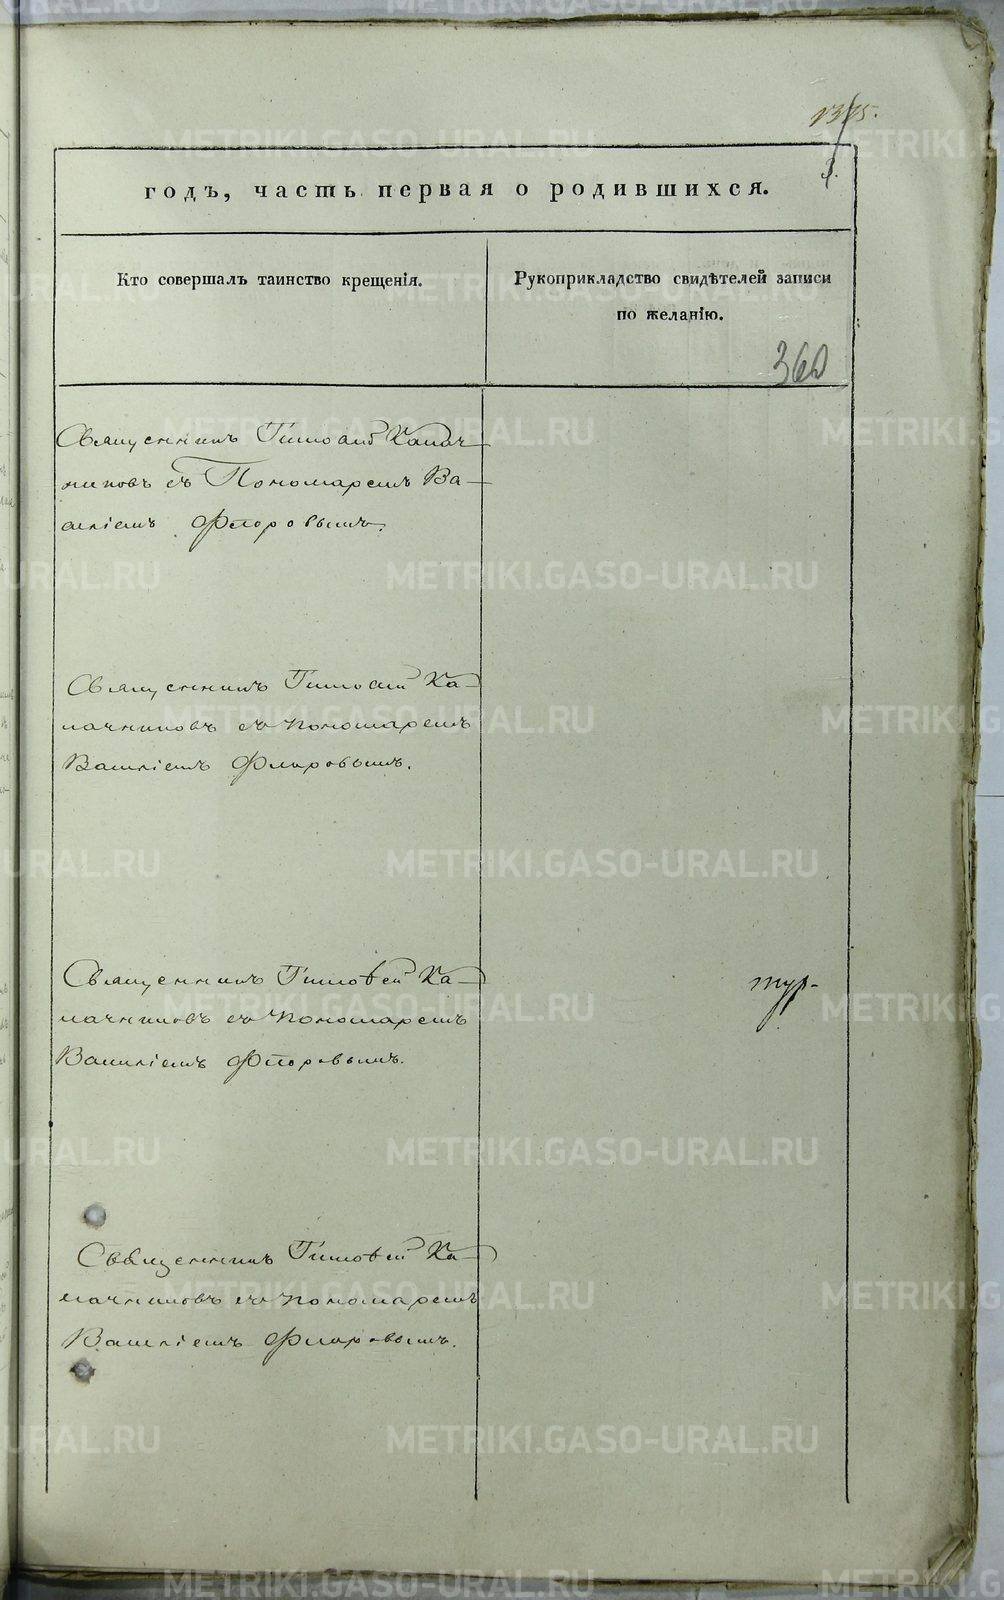 1375.
годъ, часть первая о родившихся.
Кто совершалъ таинство крещенія.
Рукоприкладство свидѣтелей записи
по желанію.
360
Священникъ Тимоѳей Калач-
никовъ съ Пономаремъ Ва-
силіемъ Флоровымъ.
Священникъ Тимоѳей Ка-
лачниковъ съ пономаремъ
Василіемъ Флоровымъ.
Священникъ Тимоѳей Ка-
лачниковъ съ пономаремъ
Василіемъ Флоровымъ.
тур-
Священникъ Тимоѳей Ка-
лачниковъ съ пономаремъ
Василіемъ Флоровымъ.
METRIKI.GASO-URAL.RU